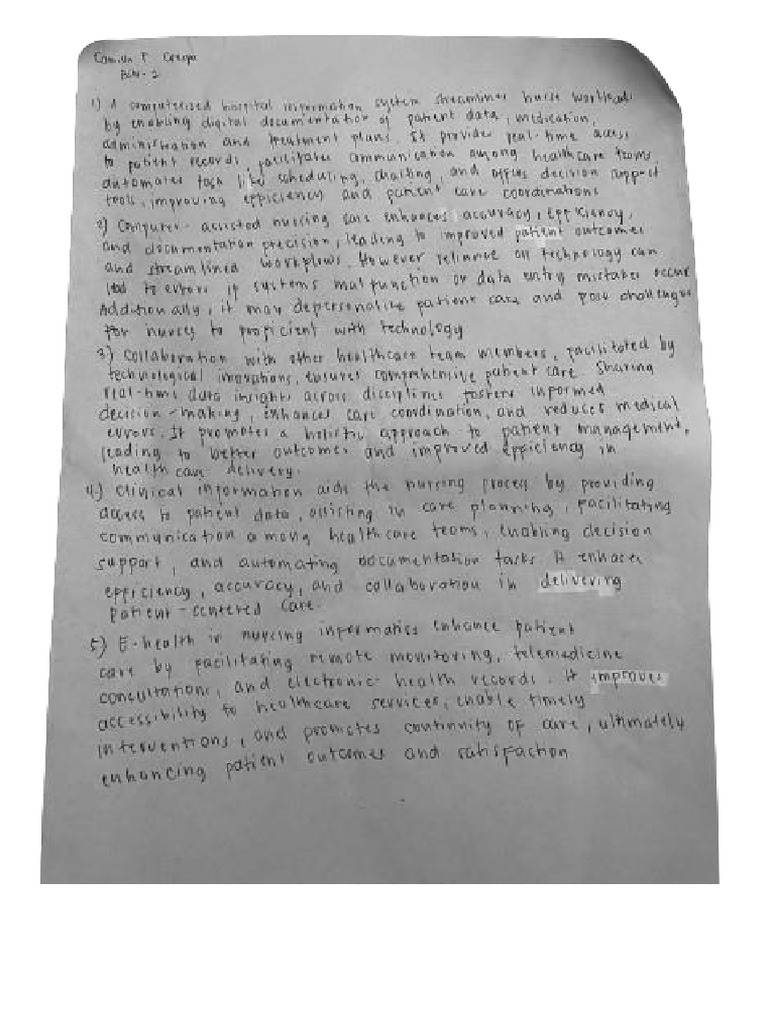 1) A computerized hospital information system streamlines nurse workload
by enabling digital documentation of patient data, medication,
administration and treatment plans. It provides real-time access
to patient records, facilitates communication among healthcare teams,
automates task like scheduling, charting, and offers decision support
tools, improving efficiency and patient care coordinations
2) Computer-assisted nursing care enhances accuracy, efficiency,
and documentation precision, leading to improved patient outcomes
and streamlined workflows. However reliance on technology can
lead to errors if systems malfunction or data entry mistakes occur.
Additionally, it may depersonalize patient care and pose challenges
for nurses to proficient with technology
3) Collaboration with other healthcare team members, facilitated by
technological innovations, ensures comprehensive patient care. Sharing
real-time data insights across disciplines fosters informed
decision-making, enhances care coordination, and reduces medical
errors. It promotes a holistic approach to patient management,
leading to better outcomes and improved efficiency in
health care delivery.
4) Clinical information aids the nursing process by providing
access to patient data, assisting in care planning, facilitating
communication among healthcare teams, enabling decision
support, and automating documentation tasks. It enhances
efficiency, accuracy, and collaboration in delivering
patient-centered care.
5) E-health in nursing informatics enhance patient
care by facilitating remote monitoring, telemedicine
consultations, and electronic health records. It improves
accessibility to healthcare services, enable timely
interventions, and promotes continuity of care, ultimately
enhancing patient outcomes and satisfaction